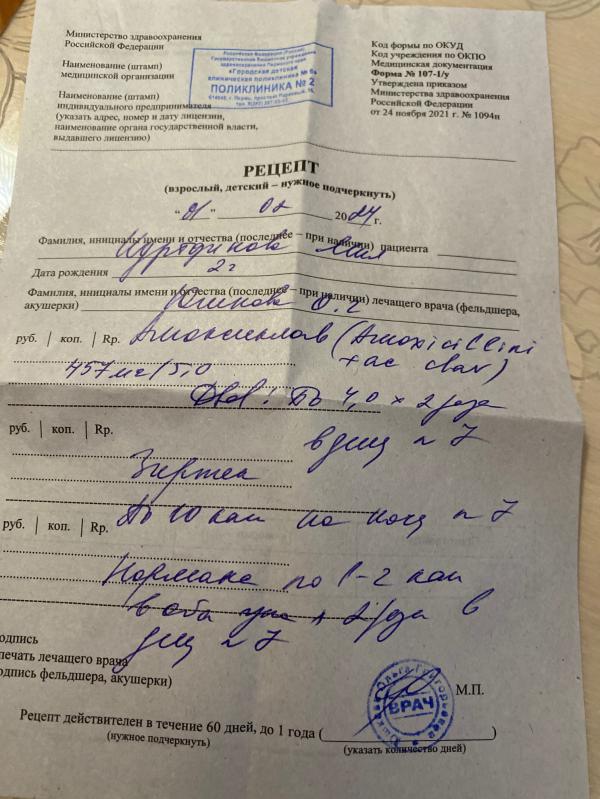 Министерство здравоохранения
Российской Федерации
Наименование (штамп)
медицинской организации
Наименование (штамп)
индивидуального предпринимателя
(указать адрес, номер и дату лицензии,
наименование органа государственной власти,
выдавшего лицензию)
Российская Федерация (Россия)
Государственное бюджетное учреждение
здравоохранения Пермского края
«Городская детская
клиническая поликлиника №
ПОЛИКЛИНИКА № 2
Код формы по ОКУД
Код учреждения по ОКПО
Медицинская документация
Форма № 107-1/у
Утверждена приказом
Министерства здравоохранения
Российской Федерации
от 24 ноября 2021 г. № 1094н
РЕЦЕПТ
(взрослый, детский – нужное подчеркнуть)
" 01 " 02 2024 г.
Фамилия, инициалы имени и отчества (последнее – при наличии) пациента
Дата рождения 2 г
Фамилия, инициалы имени и отчества (последнее – при наличии) лечащего врача (фельдшера,
акушерки)
руб. | коп. | Rp. Амоксиклав (Amoxicillini
+ ac clav)
457 мг/5,0
По 4,0 х 2 раза
в день n 7
руб. | коп. | Rp.
Зиртек
руб. | коп. | Rp. По 10 кап на ночь n 7
Нормакс по 1-2 кап
в оба уха х 2 раза в
день n 7
одпись
печать лечащего врача
одпись фельдшера, акушерки)
Ольга Григорьевна
ВРАЧ
М.П.
Рецепт действителен в течение 60 дней, до 1 года ( )
(нужное подчеркнуть) (указать количество дней)